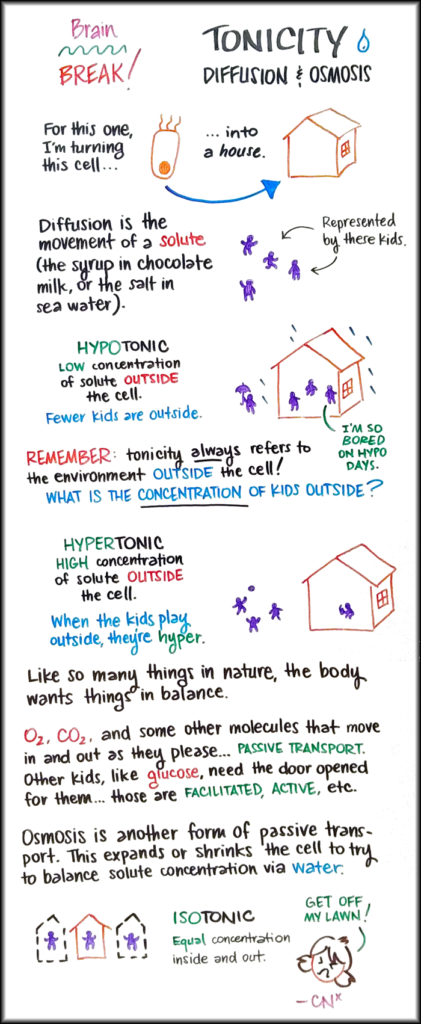 Brain
BREAK!
TONICITY
DIFFUSION & OSMOSIS
For this one,
I'm turning
this cell...
... into
a house.
Diffusion is the
movement of a solute
(the syrup in chocolate
milk, or the salt in
sea water).
Represented
by these kids.
HYPOTONIC
LOW concentration
of solute OUTSIDE
the cell.
Fewer kids are outside.
I'M SO
BORED
ON HYPO
DAYS.
REMEMBER: tonicity always refers to
the environment OUTSIDE the cell!
WHAT IS THE CONCENTRATION OF KIDS OUTSIDE?
HYPERTONIC
HIGH concentration
of solute OUTSIDE
the cell.
When the kids play
outside, they're hyper.
Like so many things in nature, the body
wants things in balance.
O₂, CO₂, and some other molecules that move
in and out as they please... PASSIVE TRANSPORT.
Other kids, like glucose, need the door opened
for them... those are FACILITATED, ACTIVE, etc.
Osmosis is another form of passive trans-
port. This expands or shrinks the cell to try
to balance solute concentration via water.
ISOTONIC
Equal concentration
inside and out.
GET OFF
MY LAWN!
-CNx